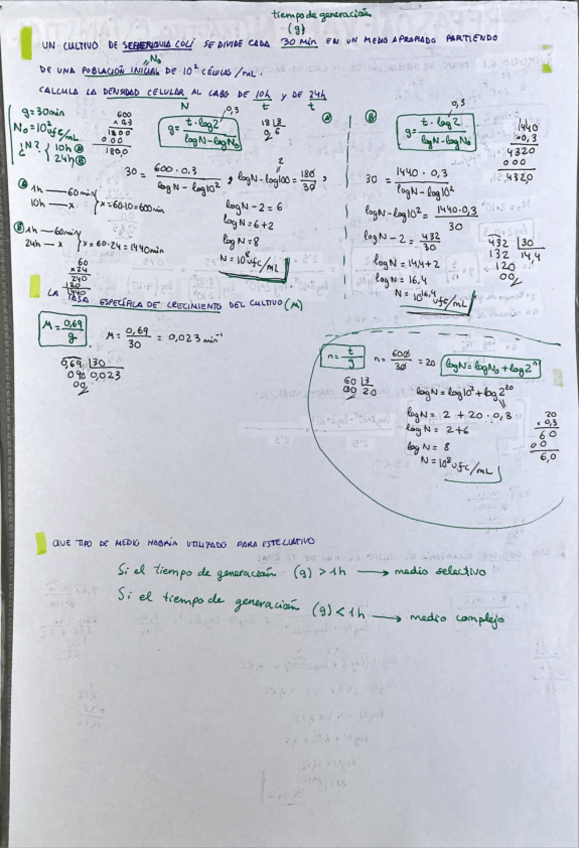 tiempo de generación
(g)
UN CULTIVO DE SCHERIQUIA COLI SE DIVIDE CADA 30 Min EN UN MEDIO APROPIADO PARTIENDO
N₀
DE UNA POBLACIÓN INICIAL DE 10² CÉLULAS /mL.
CALCULA LA DENSIDAD CELULAR AL CABO DE 10h Y DE 24h
N t t
g = 30min
N₀ = 10² ufc/mL
¿N? { 10h Ⓐ
24h Ⓑ
600
× 0,3
1800
000
180,0
0,3
g = t · log2 / logN - logN₀
18 | 3
0 6
Ⓐ
30 = 600 · 0,3 / logN - log10² , logN - log100 = 180 / 30 ;
2
logN - 2 = 6
logN = 6 + 2
logN = 8
N = 10⁸ ufc/mL
Ⓐ 1h — 60min
10h — x } x = 60·10 = 600min
Ⓑ 1h — 60min
24h — x } x = 60·24 = 1440min
60
× 24
240
120
1440
Ⓑ
0,3
g = t · log2 / logN - logN₀
1440
× 0,3
4320
000
432,0
30 = 1440 · 0,3 / logN - log10²
logN - log10² = 1440·0,3 / 30
logN - 2 = 432 / 30
logN = 14,4 + 2
logN = 16,4
N = 10^16,4 ufc/mL
432 | 30
132 14,4
120
00
LA TASA ESPECÍFICA DE CRECIMIENTO DEL CULTIVO (M)
M = 0,69 / g
M = 0,69 / 30 = 0,023 min⁻¹
0,69 | 30
090 0,023
00
n = t / g
n = 600 / 30 = 20
logN = logN₀ + log2ⁿ
60 | 3
00 20
logN = log10² + log2²⁰
logN = 2 + 20 · 0,3
logN = 2 + 6
logN = 8
N = 10⁸ ufc/mL
20
× 0,3
60
00
6,0
QUE TIPO DE MEDIO HABRIA UTILIZADO PARA ESTE CULTIVO
Si el tiempo de generación (g) > 1h ⟶ medio selectivo
Si el tiempo de generación (g) < 1h ⟶ medio complejo